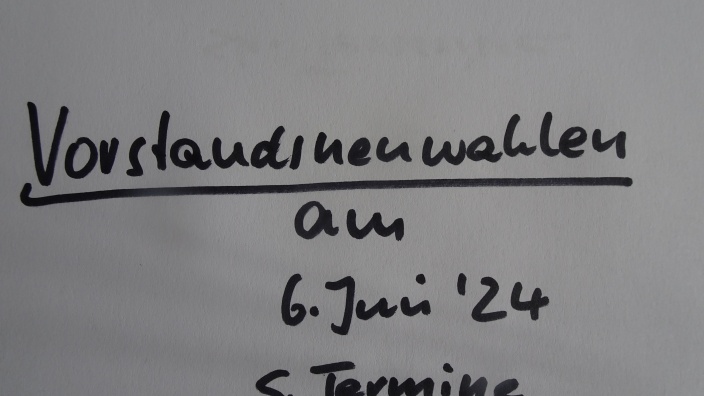 Vorstandsneuwahlen
am
6. Juni '24
S. Termine